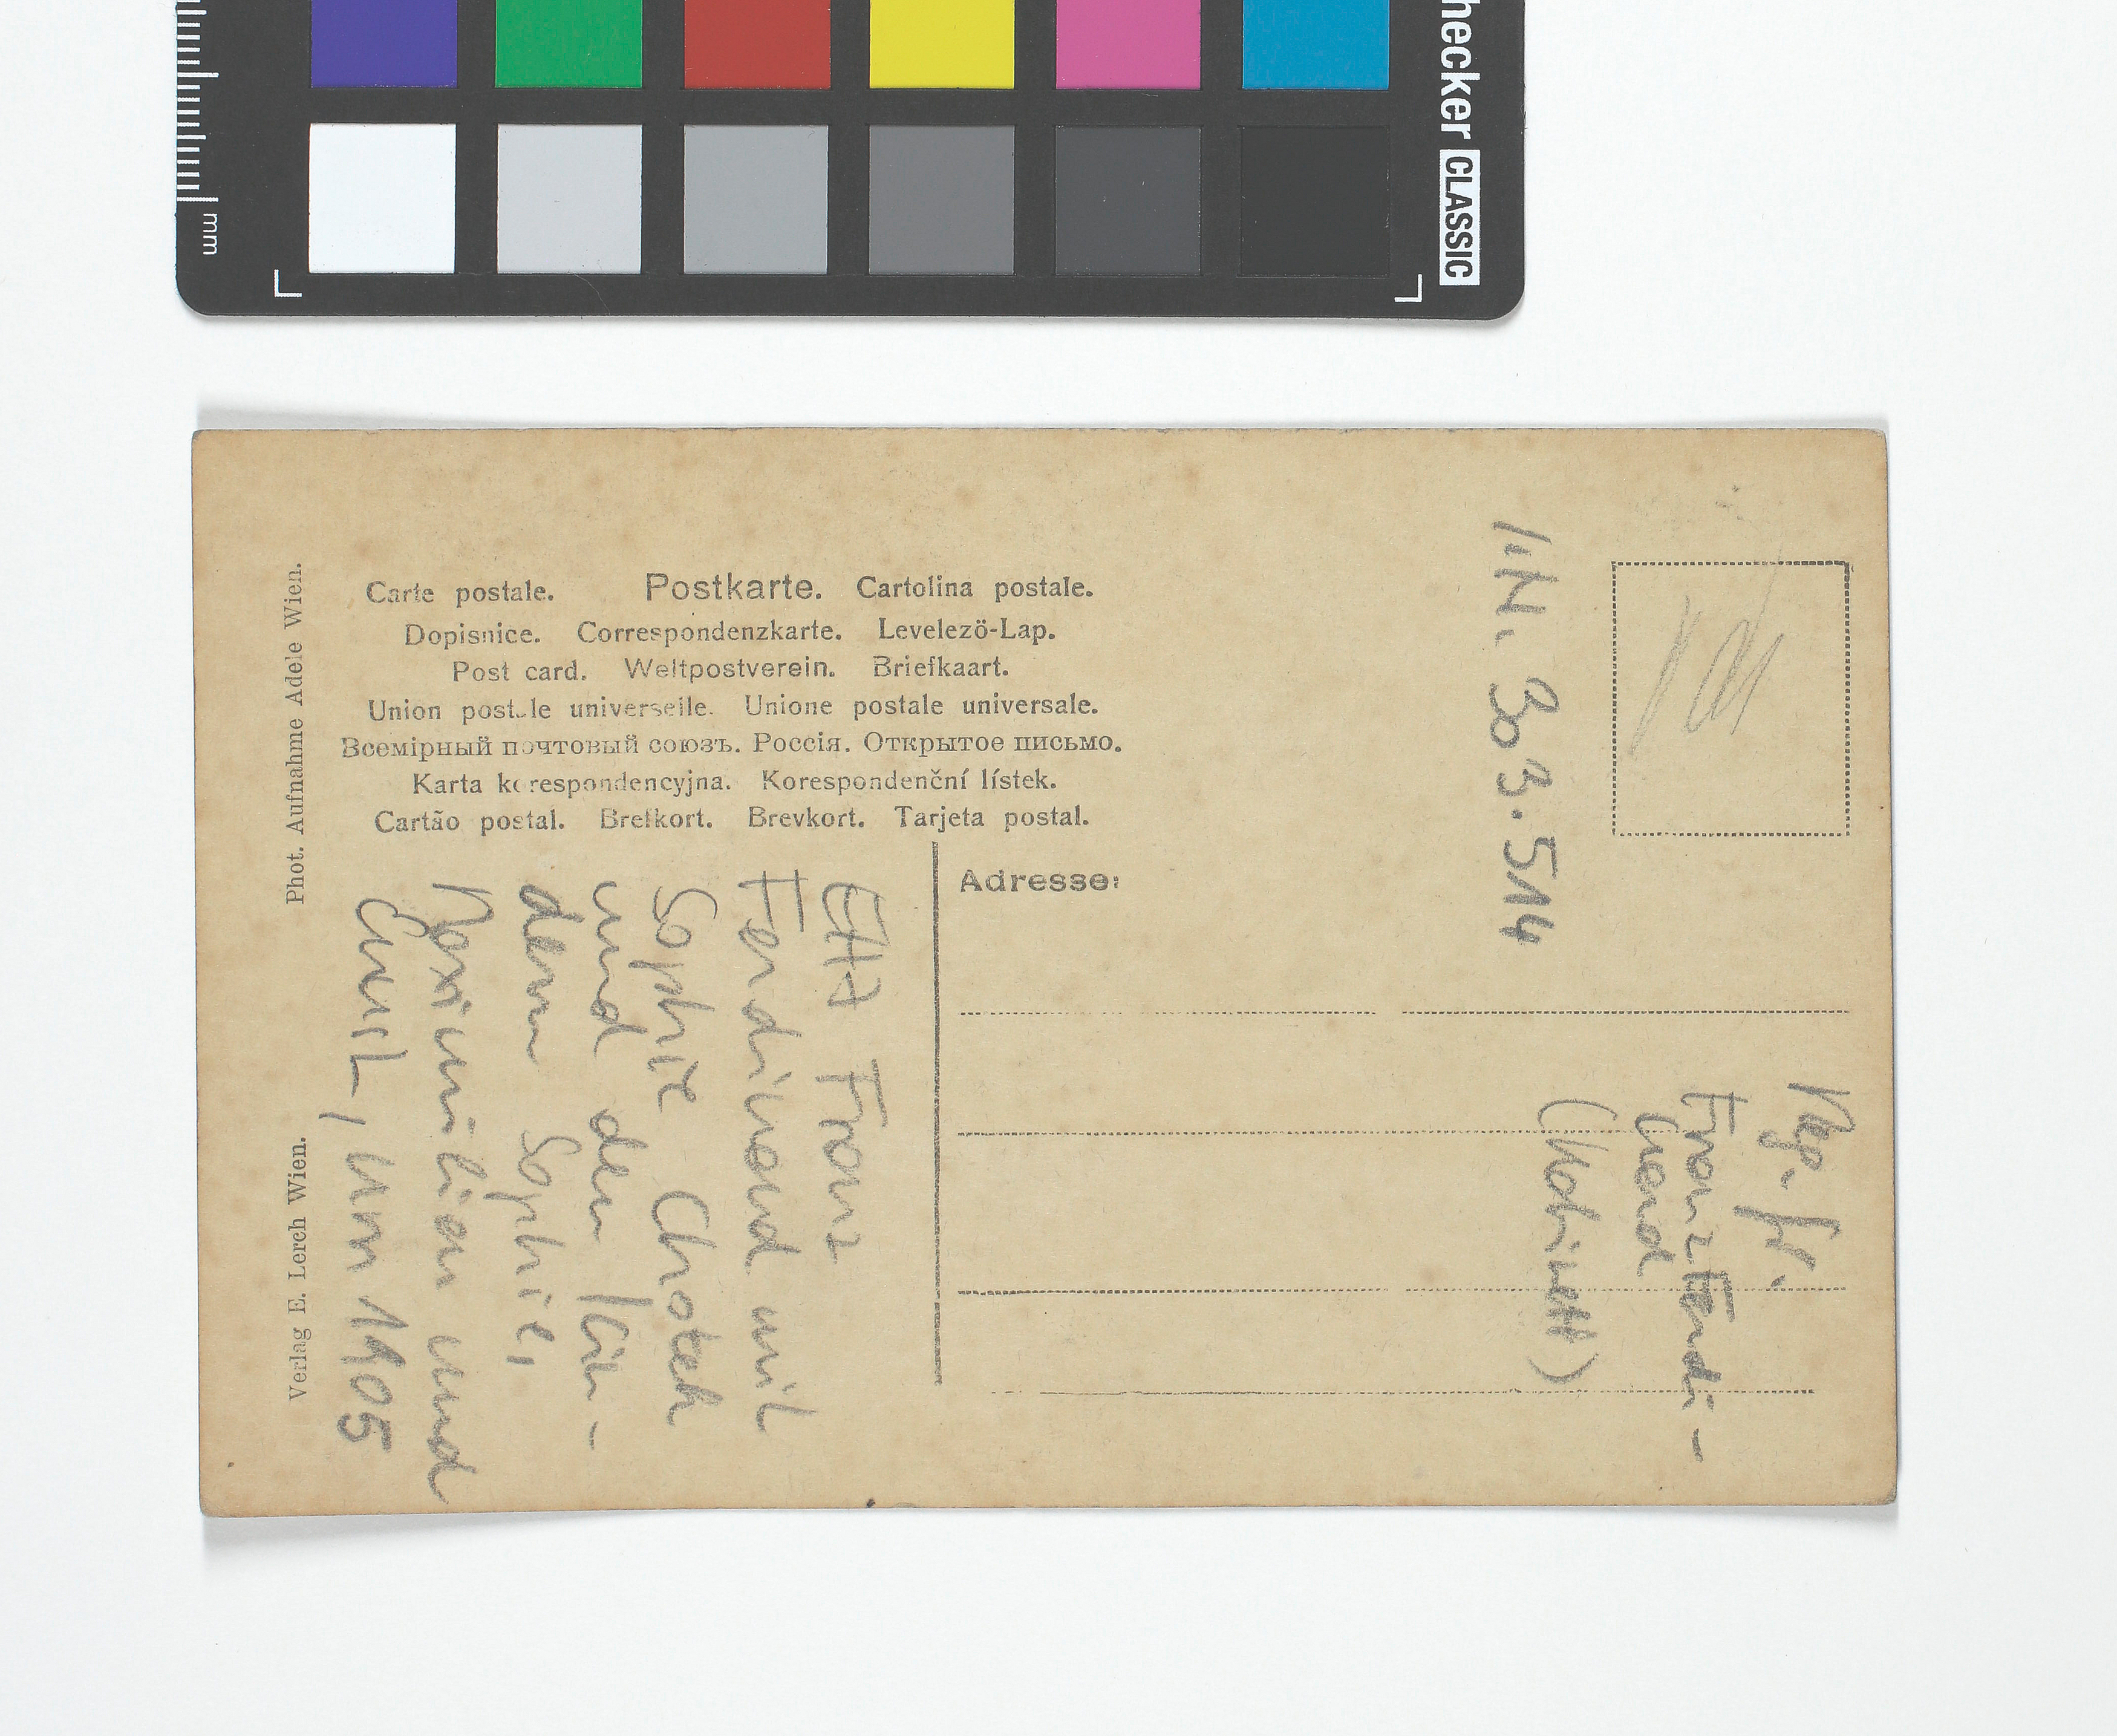 hecker CLASSIC
mm
Carte postale. Postkarte. Cartolina postale.
Dopisnice. Correspondenzkarte. Levelezö-Lap.
Post card. Weltpostverein. Briefkaart.
Union postale universelle. Unione postale universale.
Всемірный почтовый союзъ. Россія. Открытое письмо.
Karta korespondencyjna. Korespondenční lístek.
Cartão postal. Brefkort. Brevkort. Tarjeta postal.
Phot. Aufnahme Adele Wien.
Verlag E. Lerch Wien.
Adresse:
IN. 303.514
Franz Ferdi-
nand
(Kabinett)
EH Franz
Ferdinand mit
Sophie Chotek
und den Kin-
dern Sophie,
Maximilian und
Ernst, um 1905